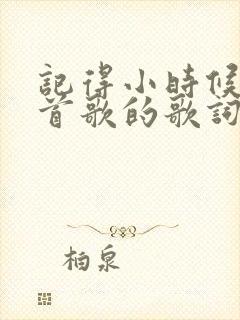 記得小時候
首歌的歌詞
柏泉